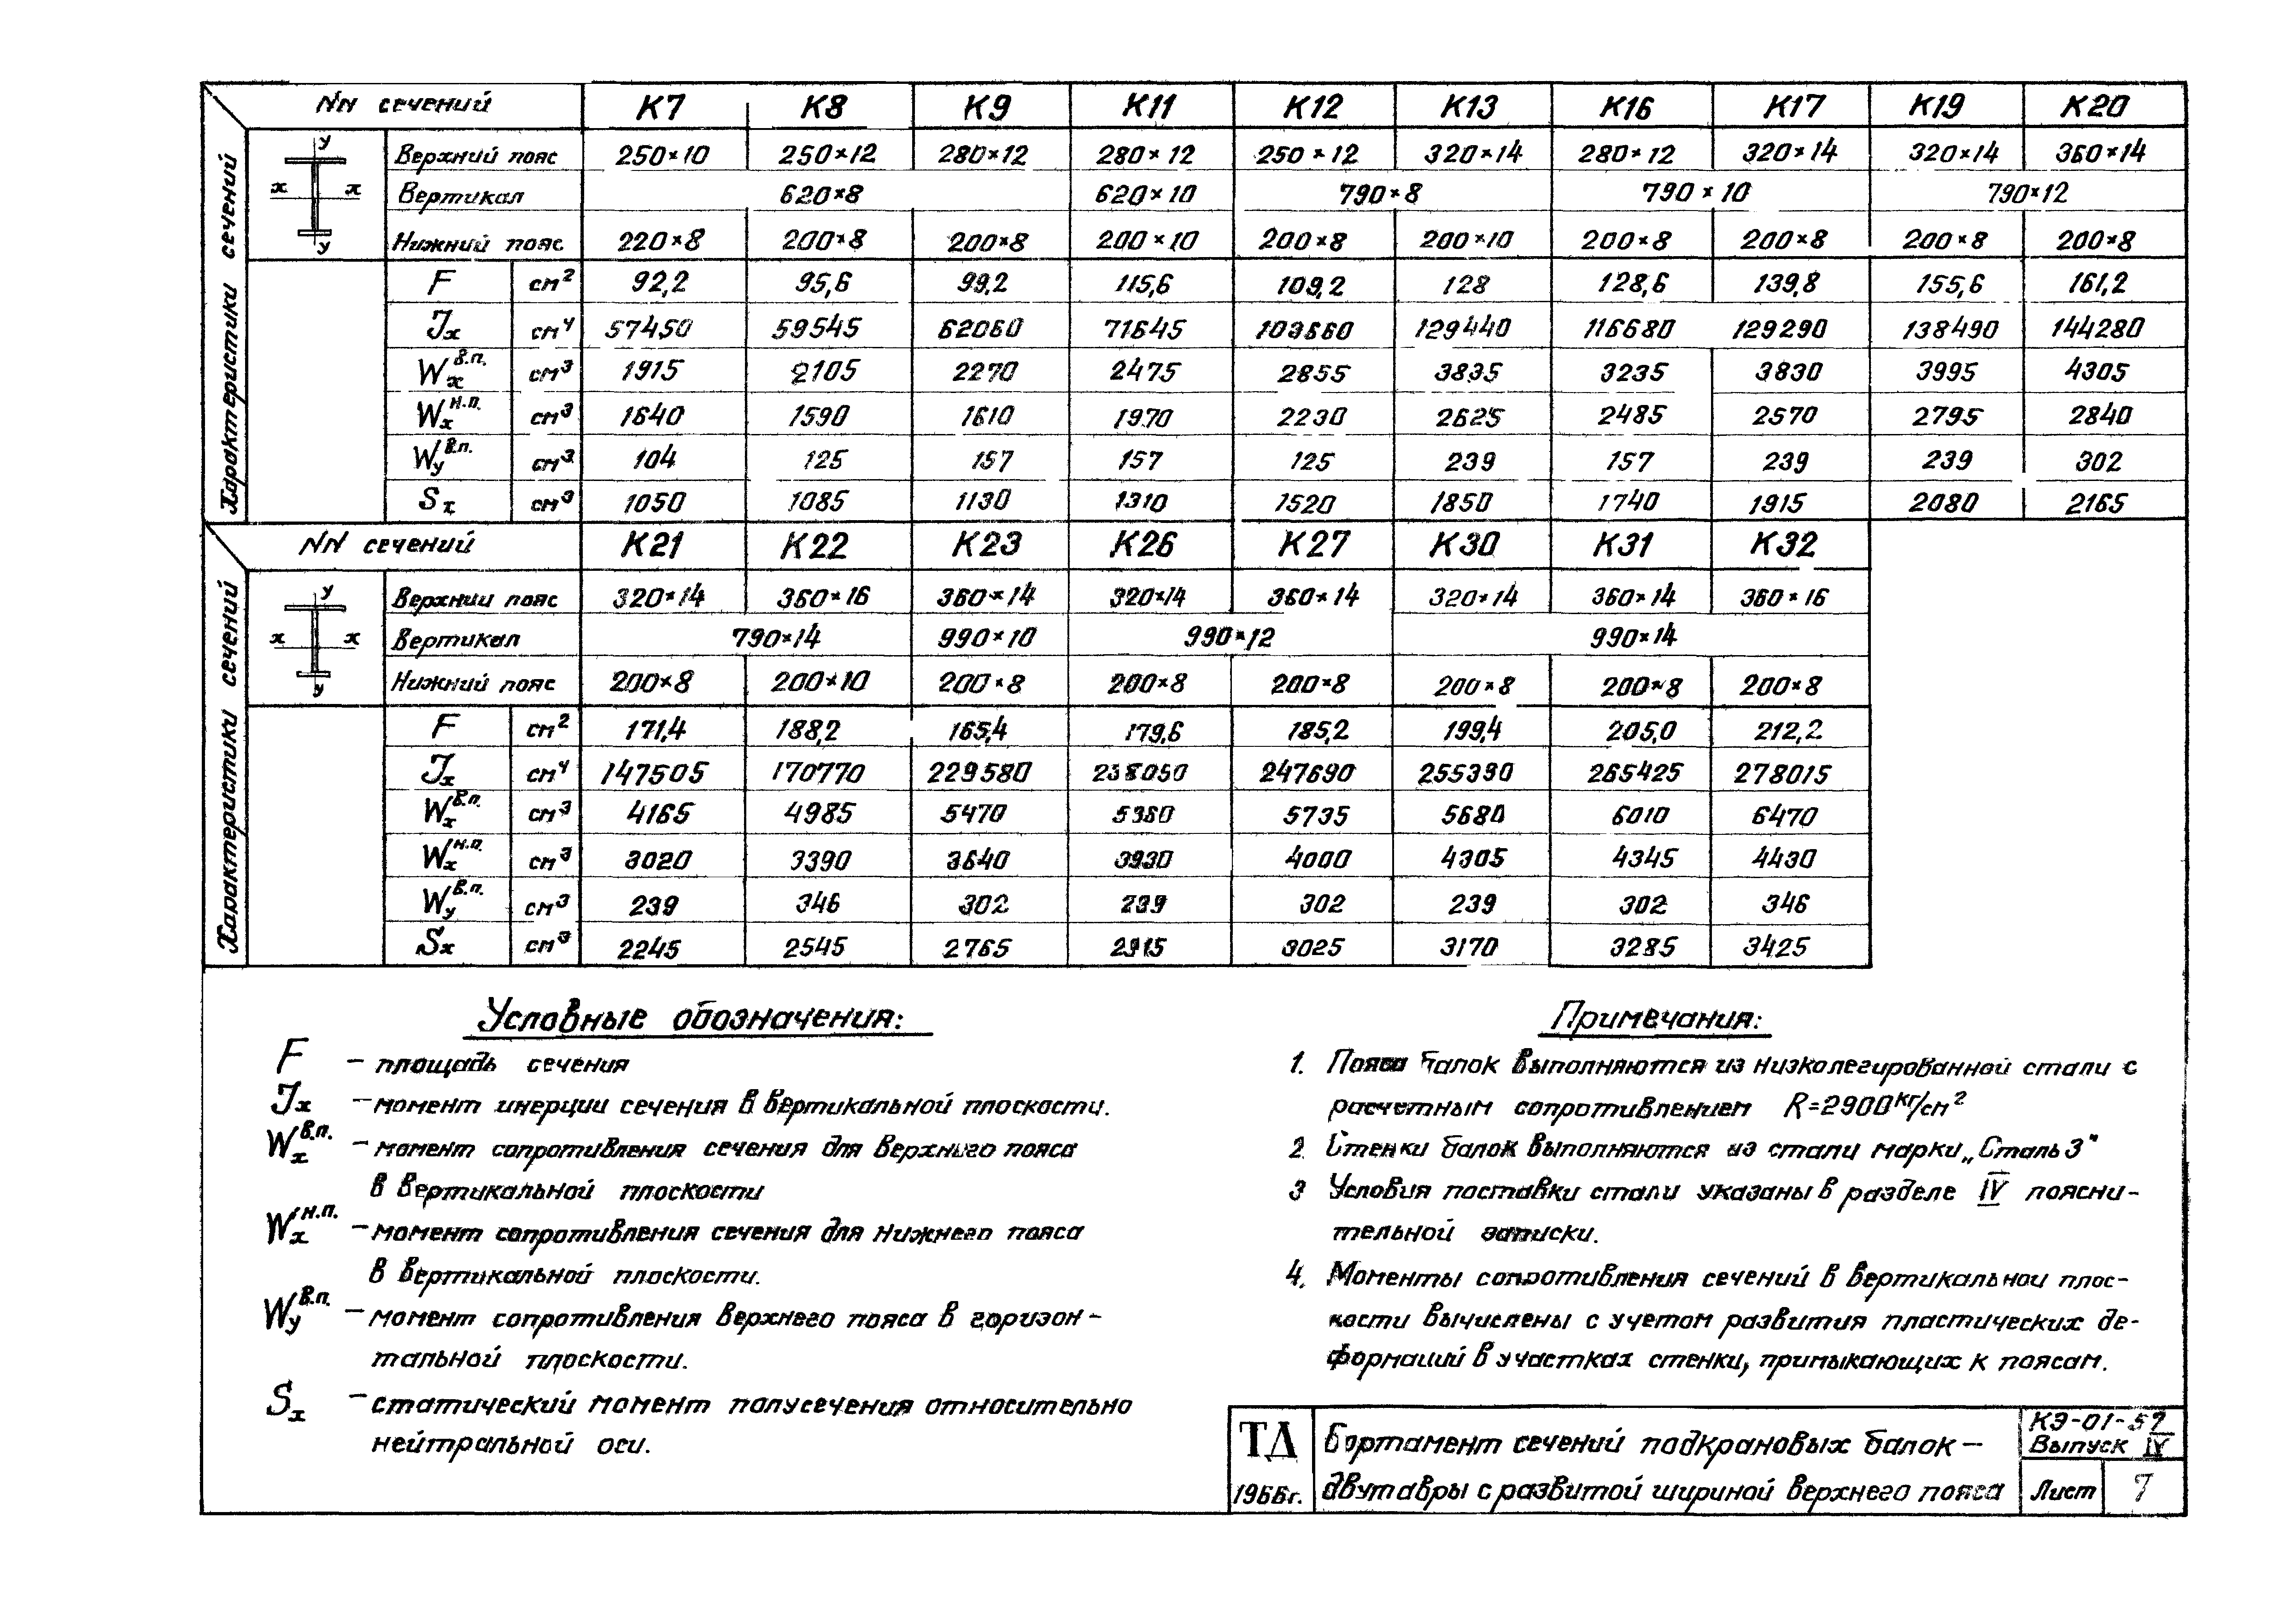 NN сечений К7 К8 К9 К11 К12 К13 К16 К17 К19 К20
Характеристики сечений
у
х х
у
Верхний пояс 250×10 250×12 280×12 280×12 250×12 320×14 280×12 320×14 320×14 360×14
Вертикал 620×8 620×10 790×8 790×10 790×12
Нижний пояс 220×8 200×8 200×8 200×10 200×8 200×10 200×8 200×8 200×8 200×8
F см² 92,2 95,6 99,2 115,6 109,2 128 128,6 139,8 155,6 161,2
Jx см⁴ 57450 59545 62060 71645 103660 129440 116680 129290 138490 144280
Wx в.п. см³ 1915 2105 2270 2475 2855 3835 3235 3830 3995 4305
Wx н.п. см³ 1640 1590 1610 1970 2230 2625 2485 2570 2795 2840
Wy в.п. см³ 104 125 157 157 125 239 157 239 239 302
Sx см³ 1050 1085 1130 1310 1520 1850 1740 1915 2080 2165
NN сечений К21 К22 К23 К26 К27 К30 К31 К32
Характеристики сечений
у
х х
у
Верхний пояс 320×14 360×16 360×14 320×14 360×14 320×14 360×14 360×16
Вертикал 790×14 990×10 990×12 990×14
Нижний пояс 200×8 200×10 200×8 200×8 200×8 200×8 200×8 200×8
F см² 171,4 188,2 165,4 179,6 185,2 199,4 205,0 212,2
Jx см⁴ 147505 170770 229580 238050 247690 255390 265425 278015
Wx в.п. см³ 4165 4985 5470 5360 5735 5680 6010 6470
Wx н.п. см³ 3020 3390 3640 3930 4000 4305 4345 4430
Wy в.п. см³ 239 346 302 239 302 239 302 346
Sx см³ 2245 2545 2765 2915 3025 3170 3285 3425
Условные обозначения:
F – площадь сечения
Jx – момент инерции сечения в вертикальной плоскости.
Wx в.п. – момент сопротивления сечения для верхнего пояса
в вертикальной плоскости
Wx н.п. – момент сопротивления сечения для нижнего пояса
в вертикальной плоскости.
Wy в.п. – момент сопротивления верхнего пояса в горизон-
тальной плоскости.
Sx – статический момент полусечения относительно
нейтральной оси.
Примечания:
1. Пояса балок выполняются из низколегированной стали с
расчетным сопротивлением R=2900 кг/см²
2. Стенки балок выполняются из стали марки „Сталь 3"
3 Условия поставки стали указаны в разделе IV поясни-
тельной записки.
4. Моменты сопротивления сечений в вертикальной плос-
кости вычислены с учетом развития пластических де-
формаций в участках стенки, примыкающих к поясам.
ТД
1966г.
Сортамент сечений подкрановых балок –
двутавры с развитой шириной верхнего пояса
КЭ-01-57
Выпуск IV
Лист 7